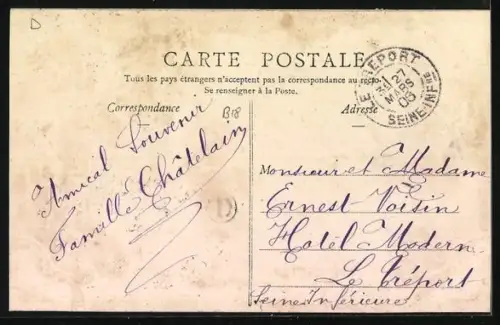 D
CARTE POSTALE
Tous les pays étrangers n'acceptent pas la correspondance au recto.
Se renseigner à la Poste.
Correspondance
B18
Adresse
LE TREPORT
27
MARS
06
SEINE INFRE
Amical Souvenir
Famille Châtelain
D
Monsieur et Madame
Ernest Voisin
Hotel Modern
Le Tréport
Seine Inférieure